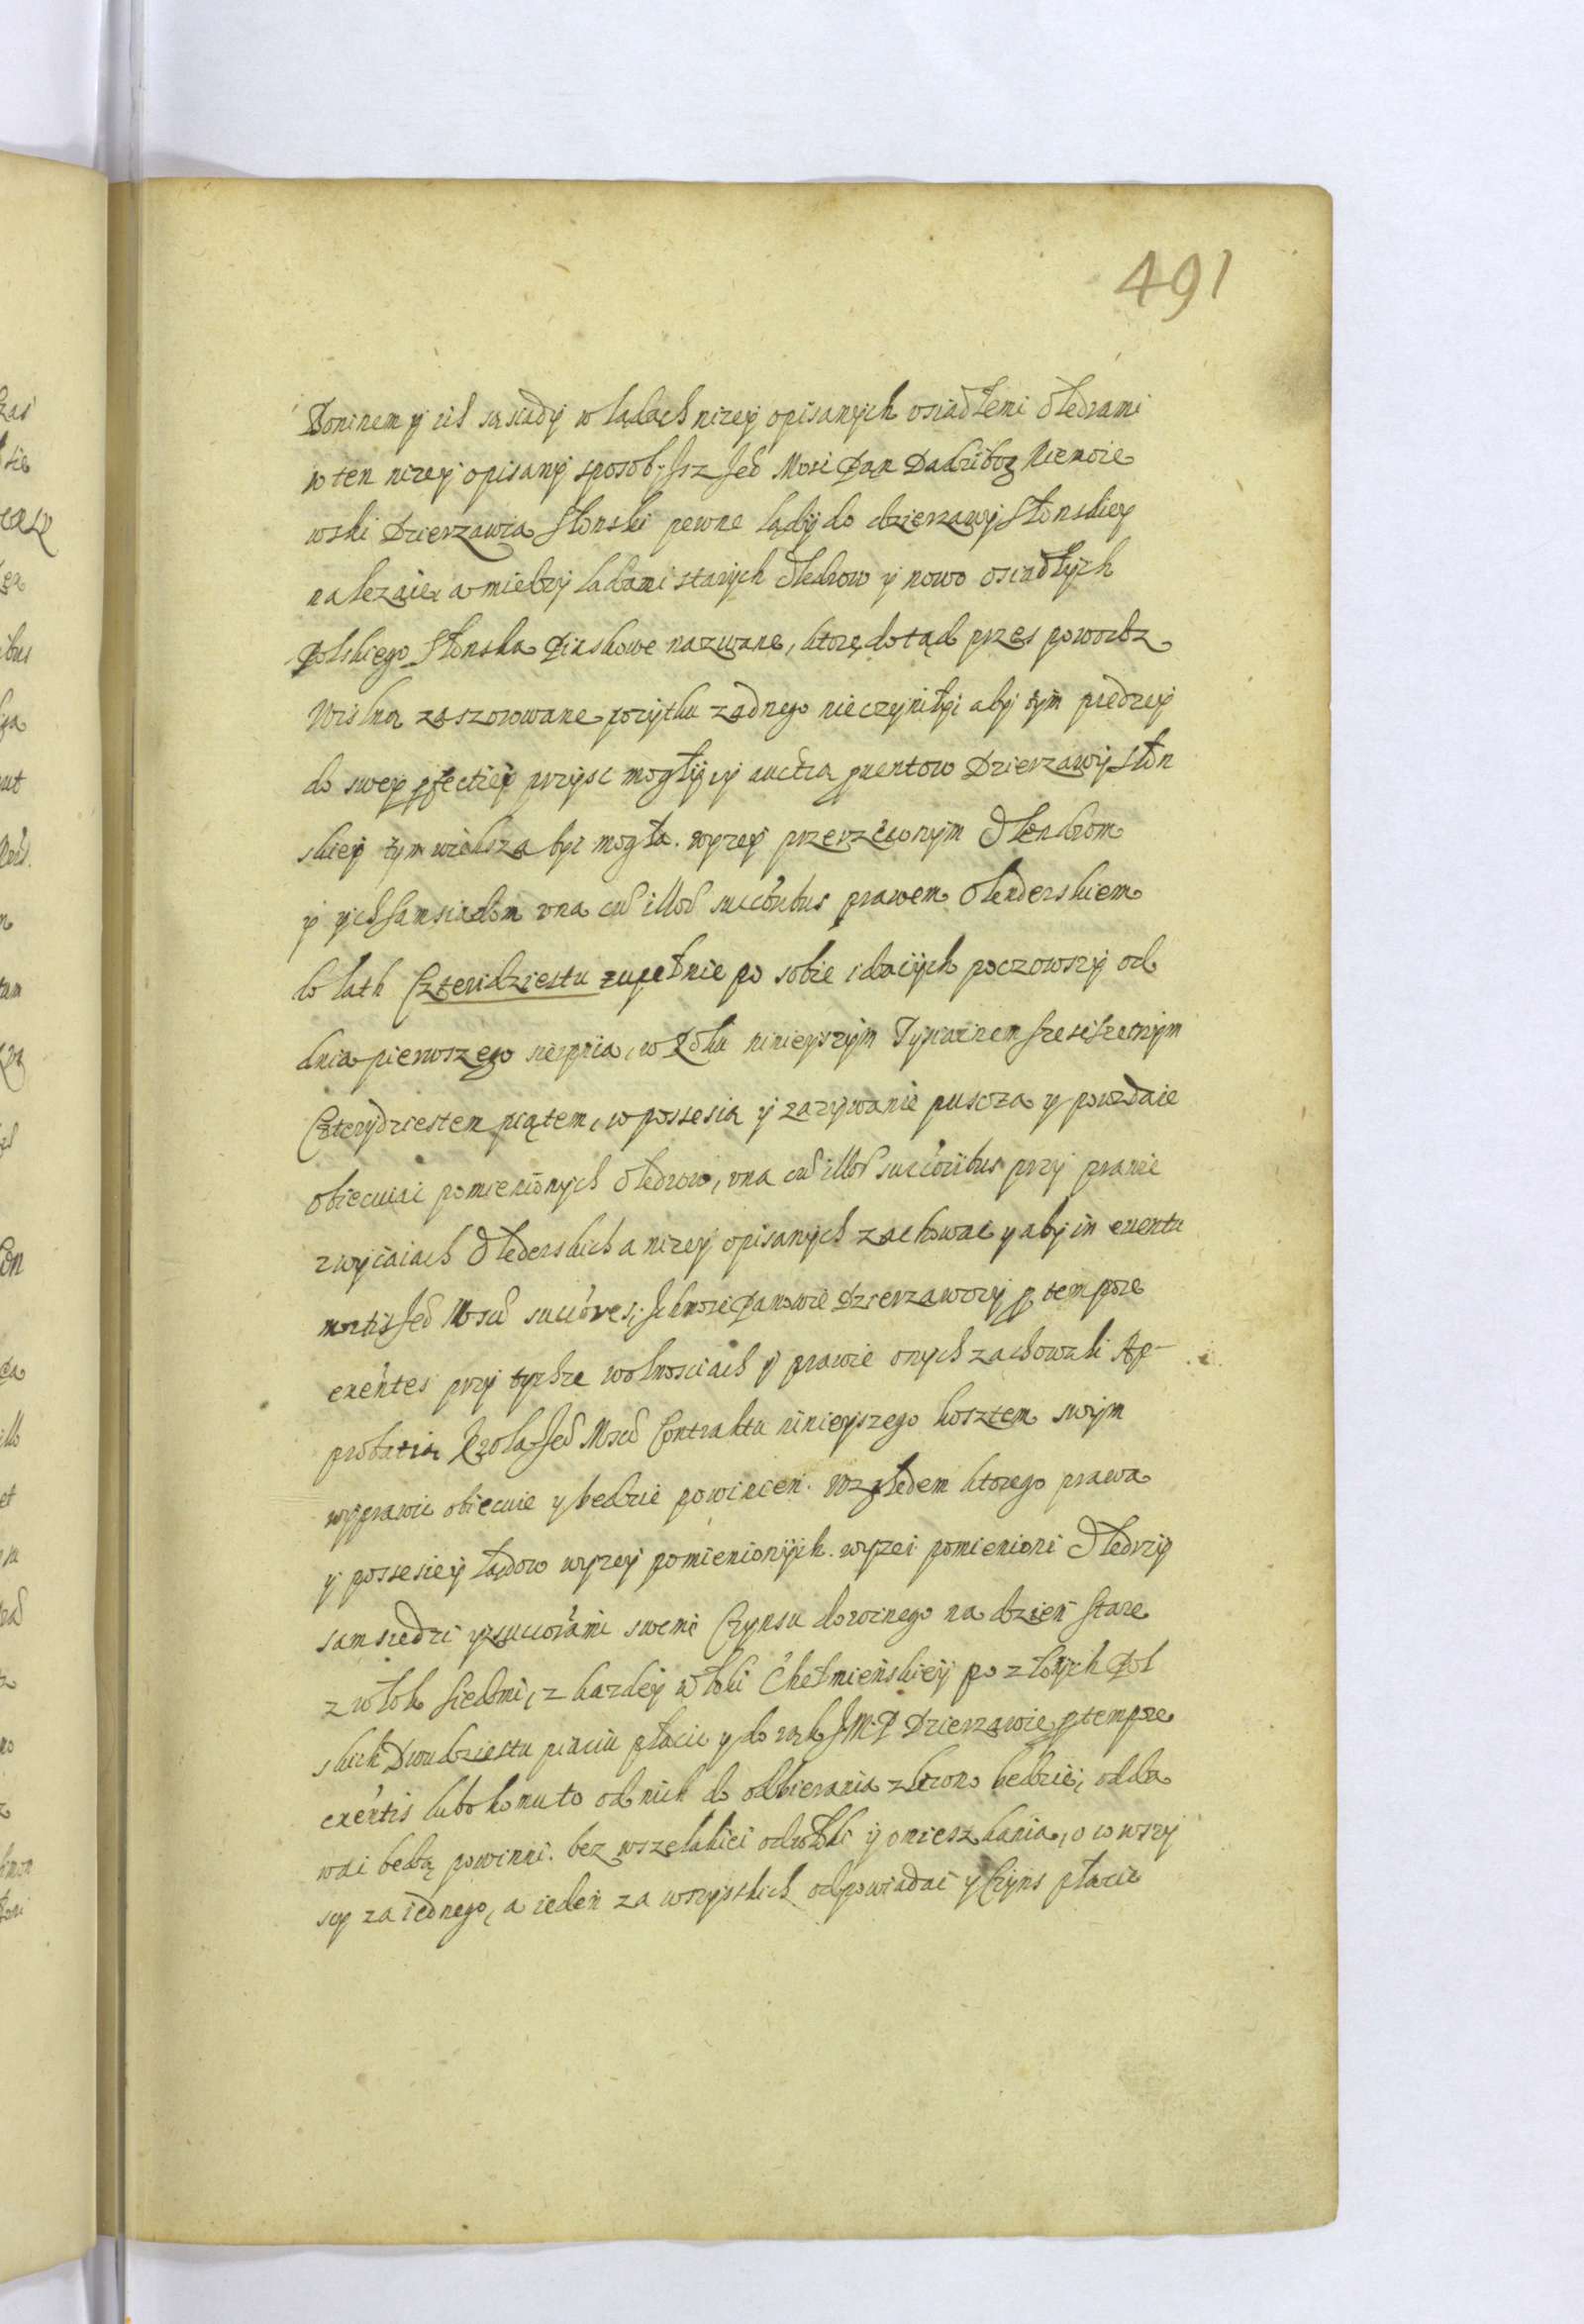 491
Doninem y ich sąsiady w lądach nizey opisanych osiadłemi Olędrami
w ten nizey opisany sposob. Isz Jeo Mosc Pan Dadzibog Niemoie
wski Dzierzawca Słonski pewne lądy do dzierzawy Słonskiey
nalezące, a miedzy lądami starych Olędrow y nowo osiadłych
Polskiego Słonska Piaskowe nazwane, ktore dotąd przes powodz
Wislną zaszorowane pozytku zadnego nie czyniły, aby tym prędzey
do swey pfectiey przysc mogły, y auctia gruntow Dzierzawy Słon
skiey tym większa byc mogła. wyzey przerzeczonym Olendrom
y ych Samsiadom una cu illoru succoribus prawem Olenderskiem
do lath Czteridziestu zupełnie po sobie idacych począwszy od
dnia pierwszego sierpnia, w Roku ninieyszym Tysiącnem szescsetnym
Czterydziestem piątem, w possesią y zazywanie puscza y powzdaie
obiecuiąc pomienionych Olędrow, una cu illoru succoribus przy prawie
zwyczaiach Olęderskich a nizey opisanych zachowac y aby in euentu
mortis Jeo Mosci succores, Ichmosc Panowie Dzierzawcy p tempore
exntes przy tychze wolnosciach y prawie onych zachowali Ap-
probatią Krola Jeo Mosci Contraktu ninieyszego kosztem swym
wyprawic obiecuie y bedzie powinien. Względem ktorego prawa
y possesiey lądow wyzey pomienionych. wyzei pomienioni Olędrzy
samsiedzi y z succorami swemi Czynsu dorocznego na dzien Stare
z włok siedmi, z kazdey włoki Chełmienskiey po złotych Pol
skich Dwudziestu piaciu płacic y do rąk J.M.P Dzierzawcie p tempore
exntis lubo komu to od nich do odbierania zlecono bedzie, odda
wac bedą powinni. bez wszelakiei odwłoki y omieszkania, o co wszy
scy za iednego, a ieden za wszystkich odpowiadac y Czyns płacic